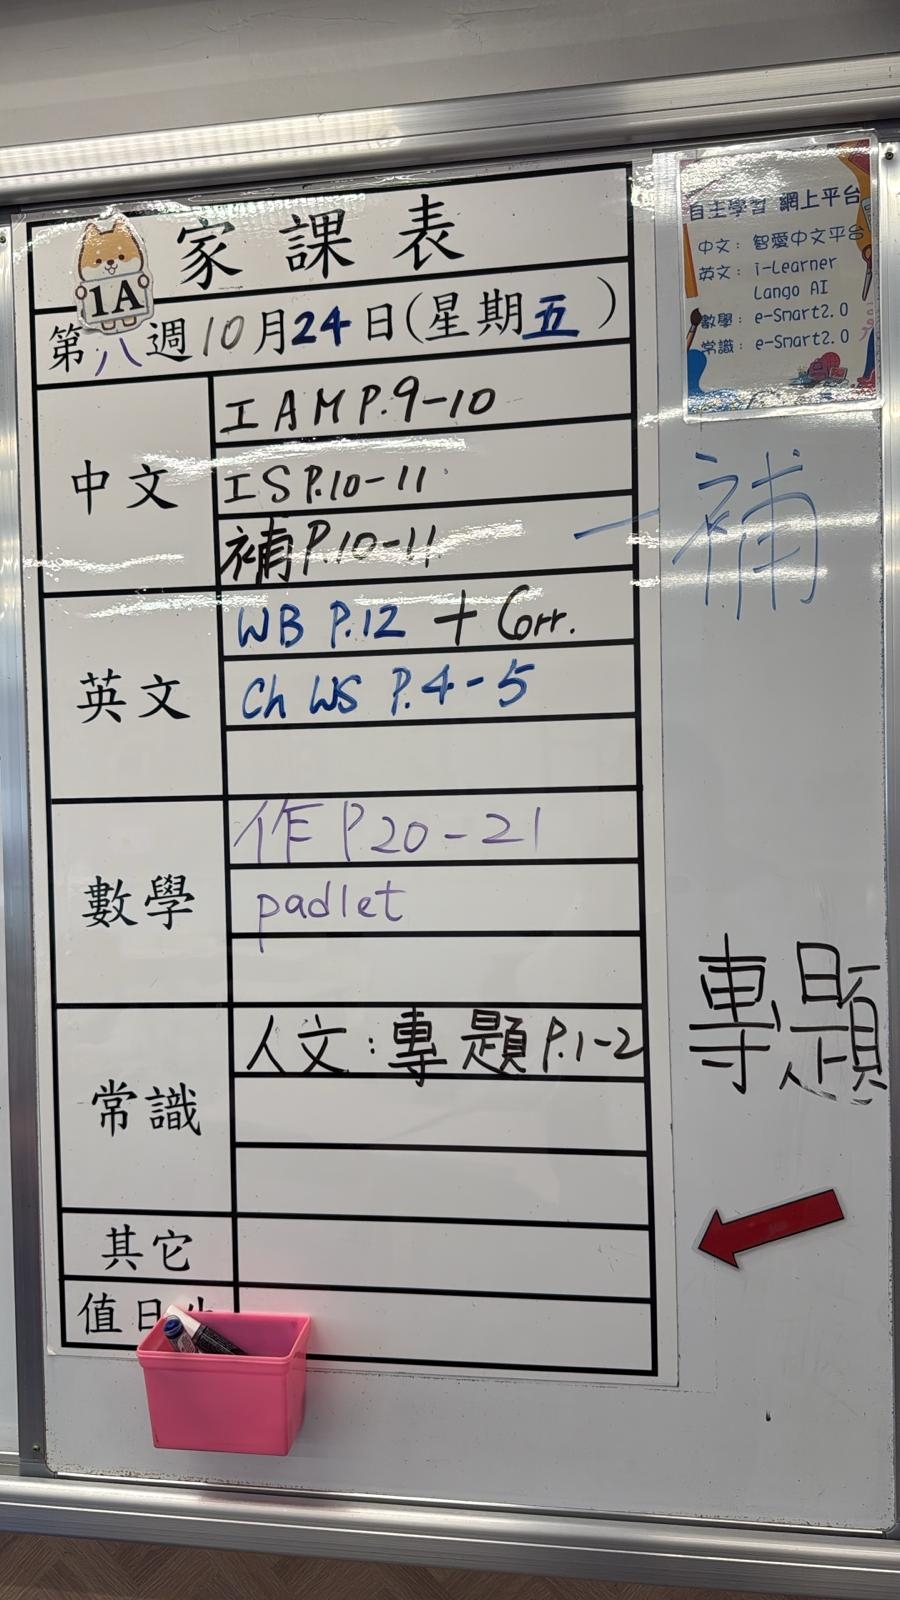 家課表
1A
第八週10月24日(星期五)
中文
I A M P.9-10
I S P.10-11
補P.10-11
英文
WB P.12 + Corr.
Ch WS P.4-5
數學
作 P 20-21
padlet
常識
人文:專題P.1-2
其它
值日
自主學習 網上平台
中文:智愛中文平台
英文:i-Learner
Lango AI
數學:e-Smart2.0
常識:e-Smart2.0
補
專題